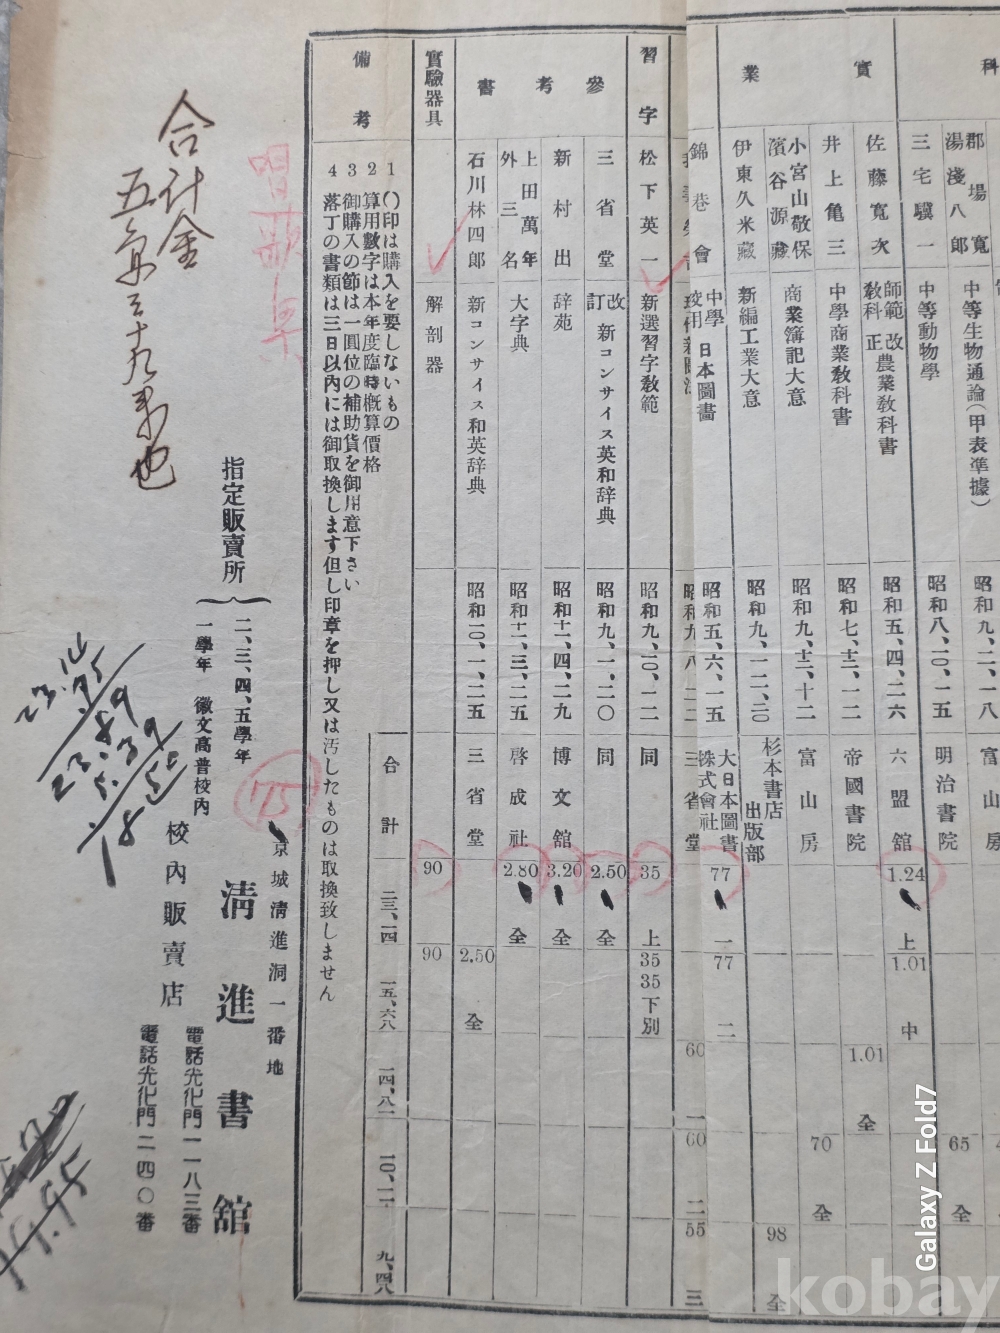 科
郡場寛
湯淺八郎
中等生物通論(甲表準據)
昭和九、二、一八
富山房
三宅驥一
中等動物學
昭和八、一〇、一五
明治書院
65
全
實業
佐藤寛次
師範教科 改正 農業教科書
昭和五、四、二六
六盟舘
1.24
上
1.01
中
井上亀三
中學商業教科書
昭和七、十二、一二
帝國書院
1.01
全
小宮山敬保
濱谷源藏
商業簿記大意
昭和九、十二、十二
富山房
70
全
伊東久米藏
新編工業大意
昭和九、一二、二〇
杉本書店
出版部
98
全
錦巷會
中學校用 日本圖畵
昭和五、六、一五
大日本圖書
株式會社
77
一
77
二
昭和九、八、二二
三省堂
60
一
60
二
55
三
習字
松下英一
新選習字教範
昭和九、一〇、一二
同
35
上
35
35
下
別
參考書
三省堂
改訂 新コンサイス英和辞典
昭和九、一、二〇
同
2.50
全
新村出
辞苑
昭和十一、四、二九
博文舘
3.20
全
上田萬年
外三名
大字典
昭和十二、三、二五
啓成社
2.80
全
石川林四郎
新コンサイス和英辞典
昭和一〇、一、二五
三省堂
2.50
全
實驗器具
解剖器
90
90
合計
二三、一四
一五、六八
一四、八一
一〇、一一
九、四八
備考
1 ()印は購入を要しないもの
2 算用數字は本年度臨時槪算價格
3 御購入の節は一圓位の補助貨を御用意下さい
4 落丁の書類は三日以內には御取換します但し印章を押し又は汚したものは取換致しません
唱歌集
75
指定販賣所
二、三、四、五學年
京城清進洞一番地
清進書舘
電話光化門一一八三番
一學年 徽文高普校內
校內販賣店
電話光化門二四〇番
合計金
五円三十九戔也
23.14
.75
23.89
5.39
18.50
Galaxy Z Fold7
kobay